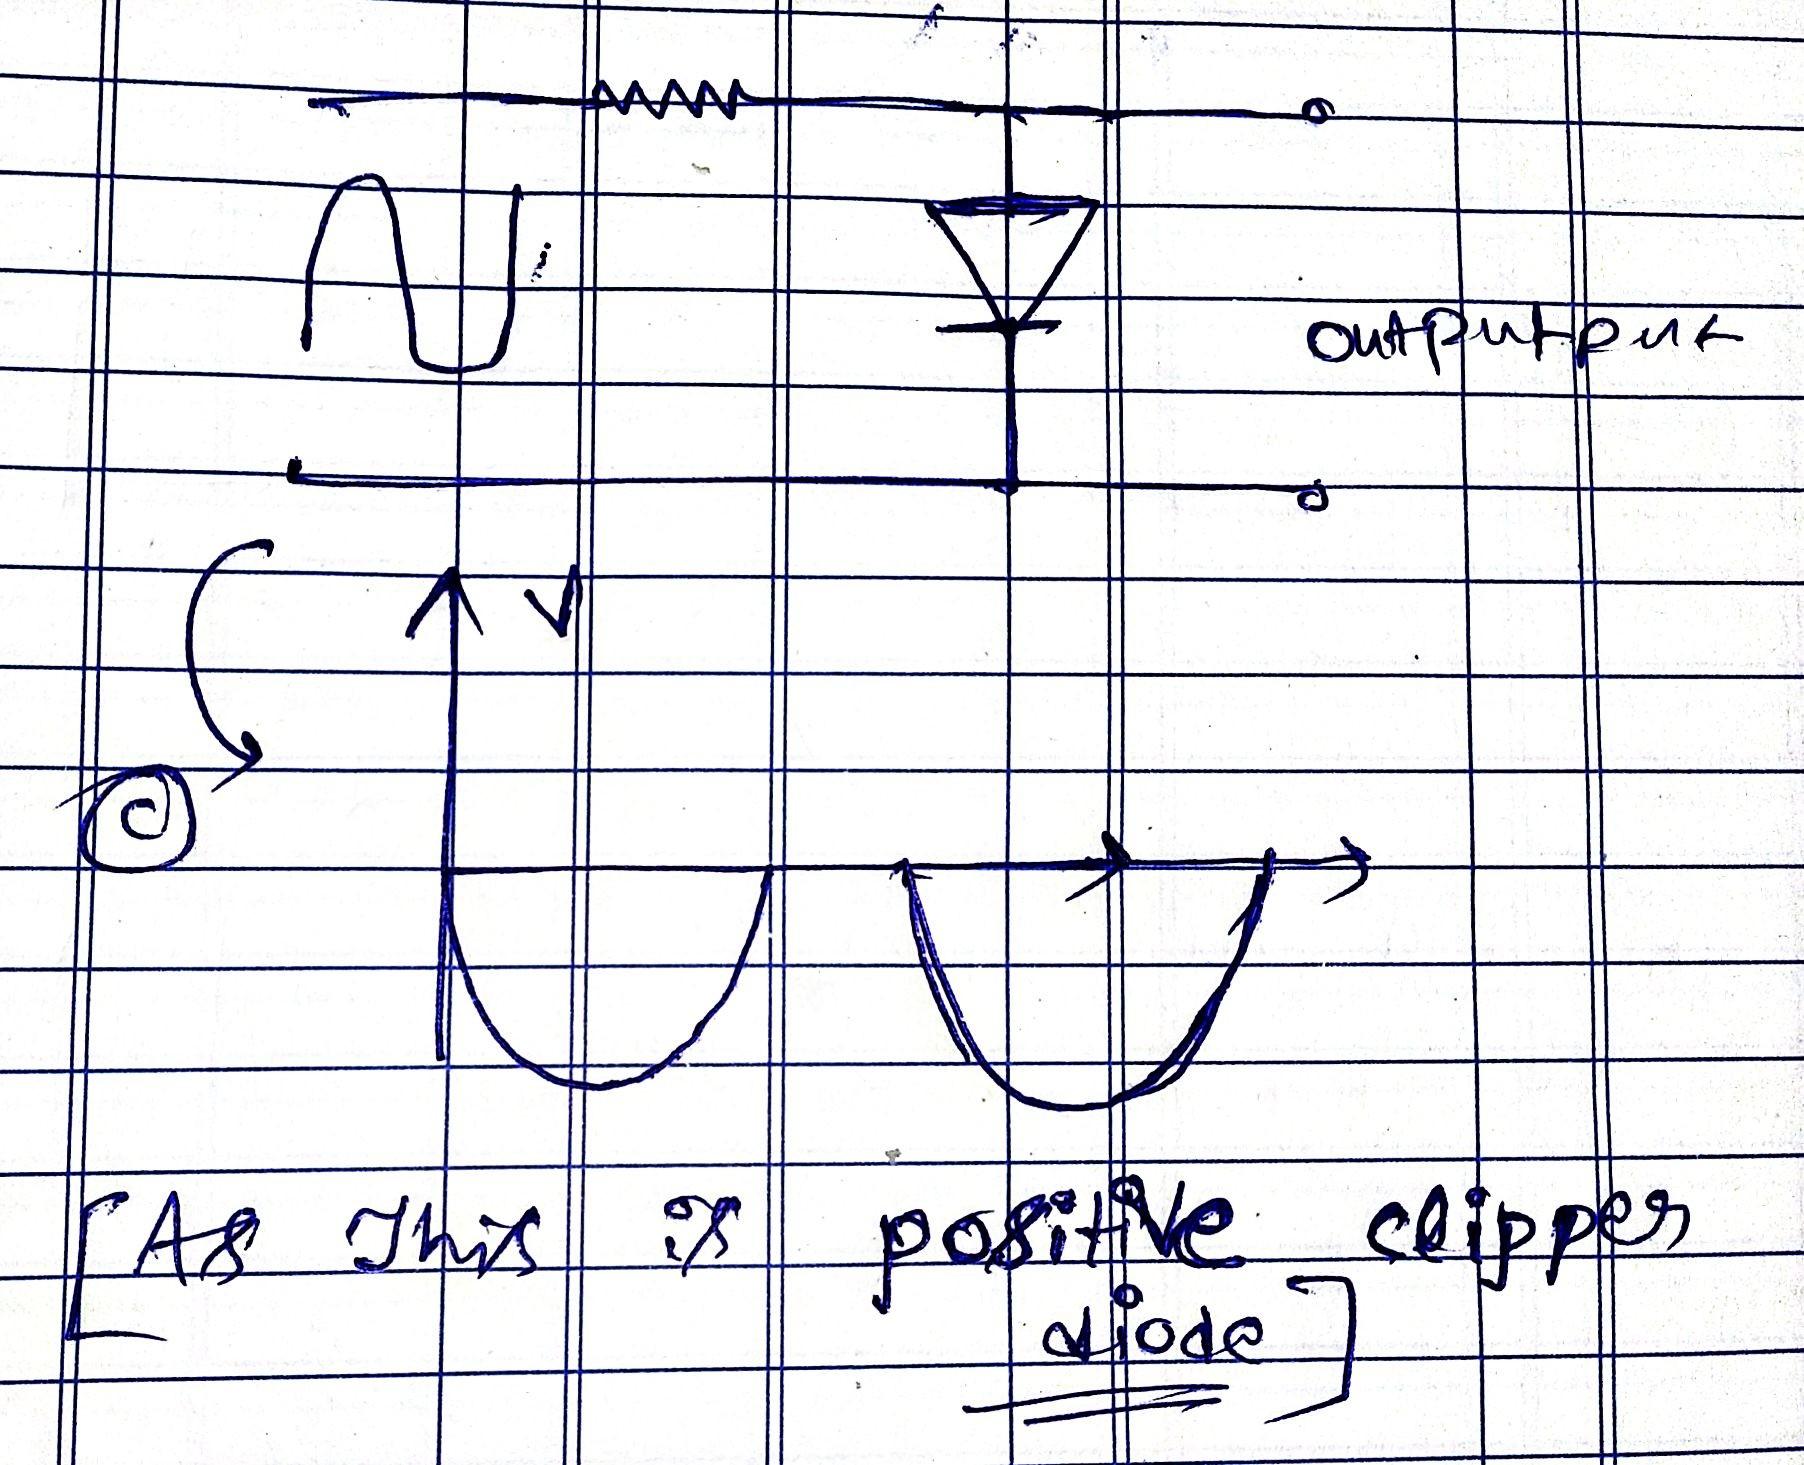 outputput
V
C
[As This is positive clipper
diode]